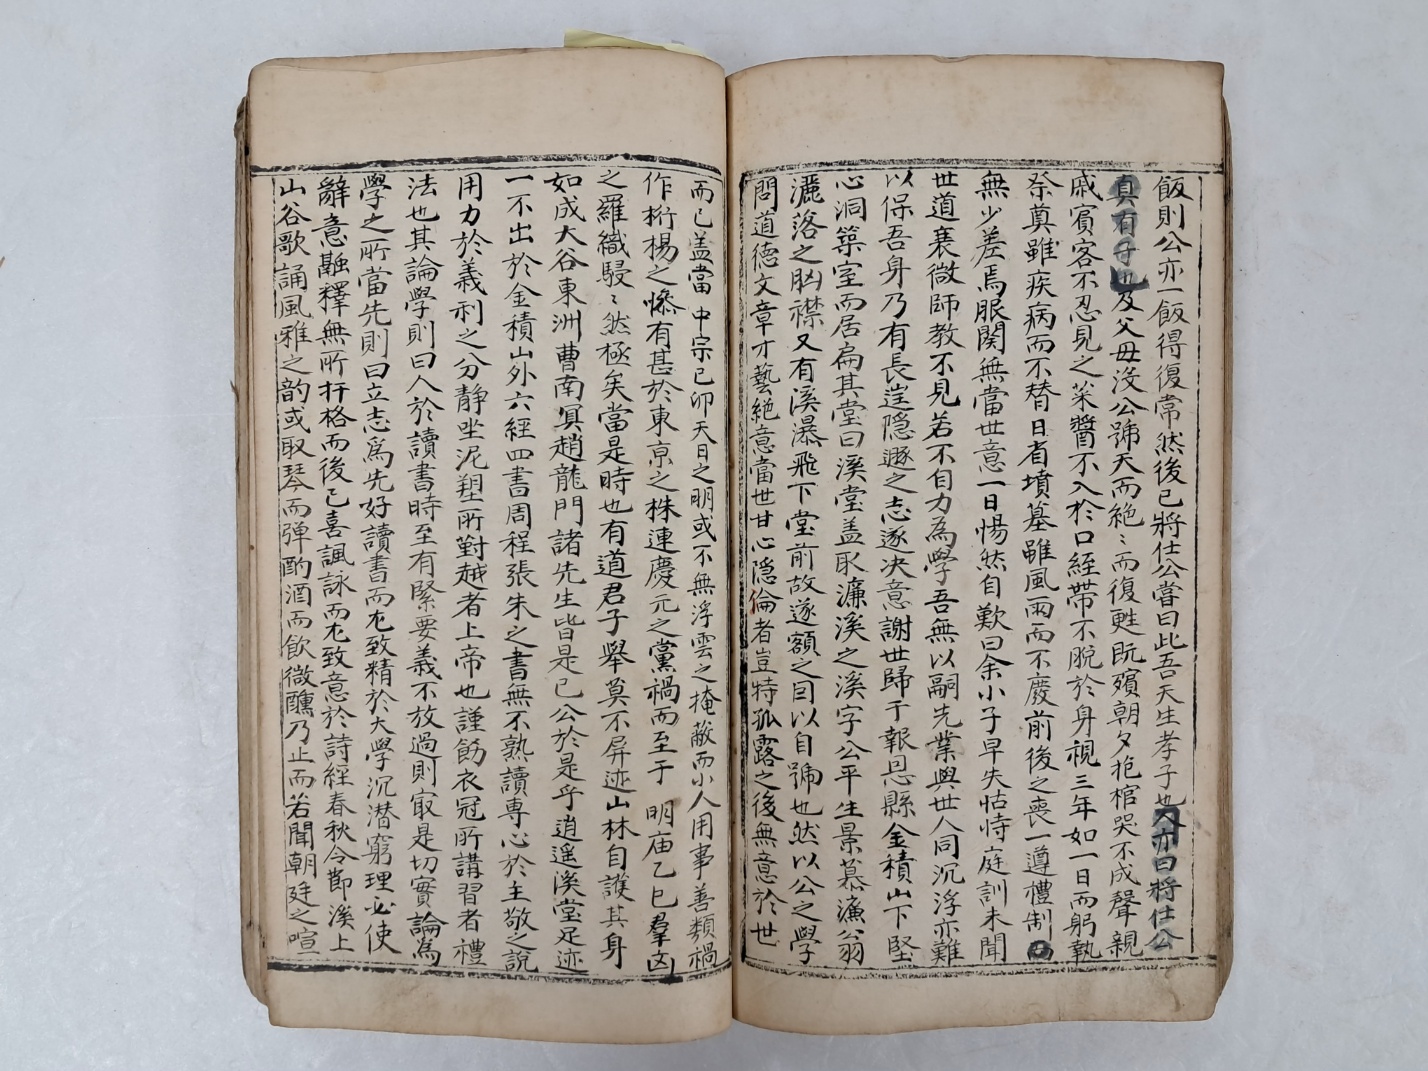 飯則公亦一飯得復常然後已將仕公嘗曰此吾天生孝子也人亦曰將仕公
眞有子也及父母沒公號天而絶〻而復甦旣殯朝夕抱棺哭不成聲親
戚賓客不忍見之菜醬不入於口絰帶不脫於身視三年如一日而躬執
祭奠雖疾病而不替日省墳墓雖風雨而不廢前後之喪一遵禮制
無少差焉服闋無當世意一日惕然自歎曰余小子早失怙恃庭訓未聞
世道衰微師教不見若不自力為學吾無以嗣先業與世人同沉浮亦難
以保吾身乃有長逞隱遯之志遂决意謝世歸于報恩縣金積山下堅
心洞築室而居扁其堂曰溪堂盖取濂溪之溪字公平生景慕濂翁
灑落之胸襟又有溪瀑飛下堂前故遂額之因以自號也然以公之學
問道德文章才藝絶意當世甘心隱倫者豈特孤露之後無意於世
而已盖當 中宗己卯天日之明或不無浮雲之掩蔽而小人用事善類禍
作桁楊之慘有甚於東京之株連慶元之黨禍而至于 明庙乙巳羣凶
之羅織駸〻然極矣當是時也有道君子擧莫不屏迹山林自護其身
如成大谷東洲曹南冥趙龍門諸先生皆是已公於是乎逍遥溪堂足迹
一不出於金積山外六經四書周程張朱之書無不熟讀專心於主敬之說
用力於義利之分靜坐泥塑所對越者上帝也謹飭衣冠所講習者禮
法也其論學則曰人於讀書時至有緊要義不放過則㝡是切實論為
學之所當先則曰立志爲先好讀書而尤致精於大學沉潛窮理必使
辭意融釋無所扞格而後已喜諷詠而尤致意於詩經春秋令節溪上
山谷歌誦風雅之韵或取琴而彈酌酒而飮微醺乃止而若聞朝廷之喧